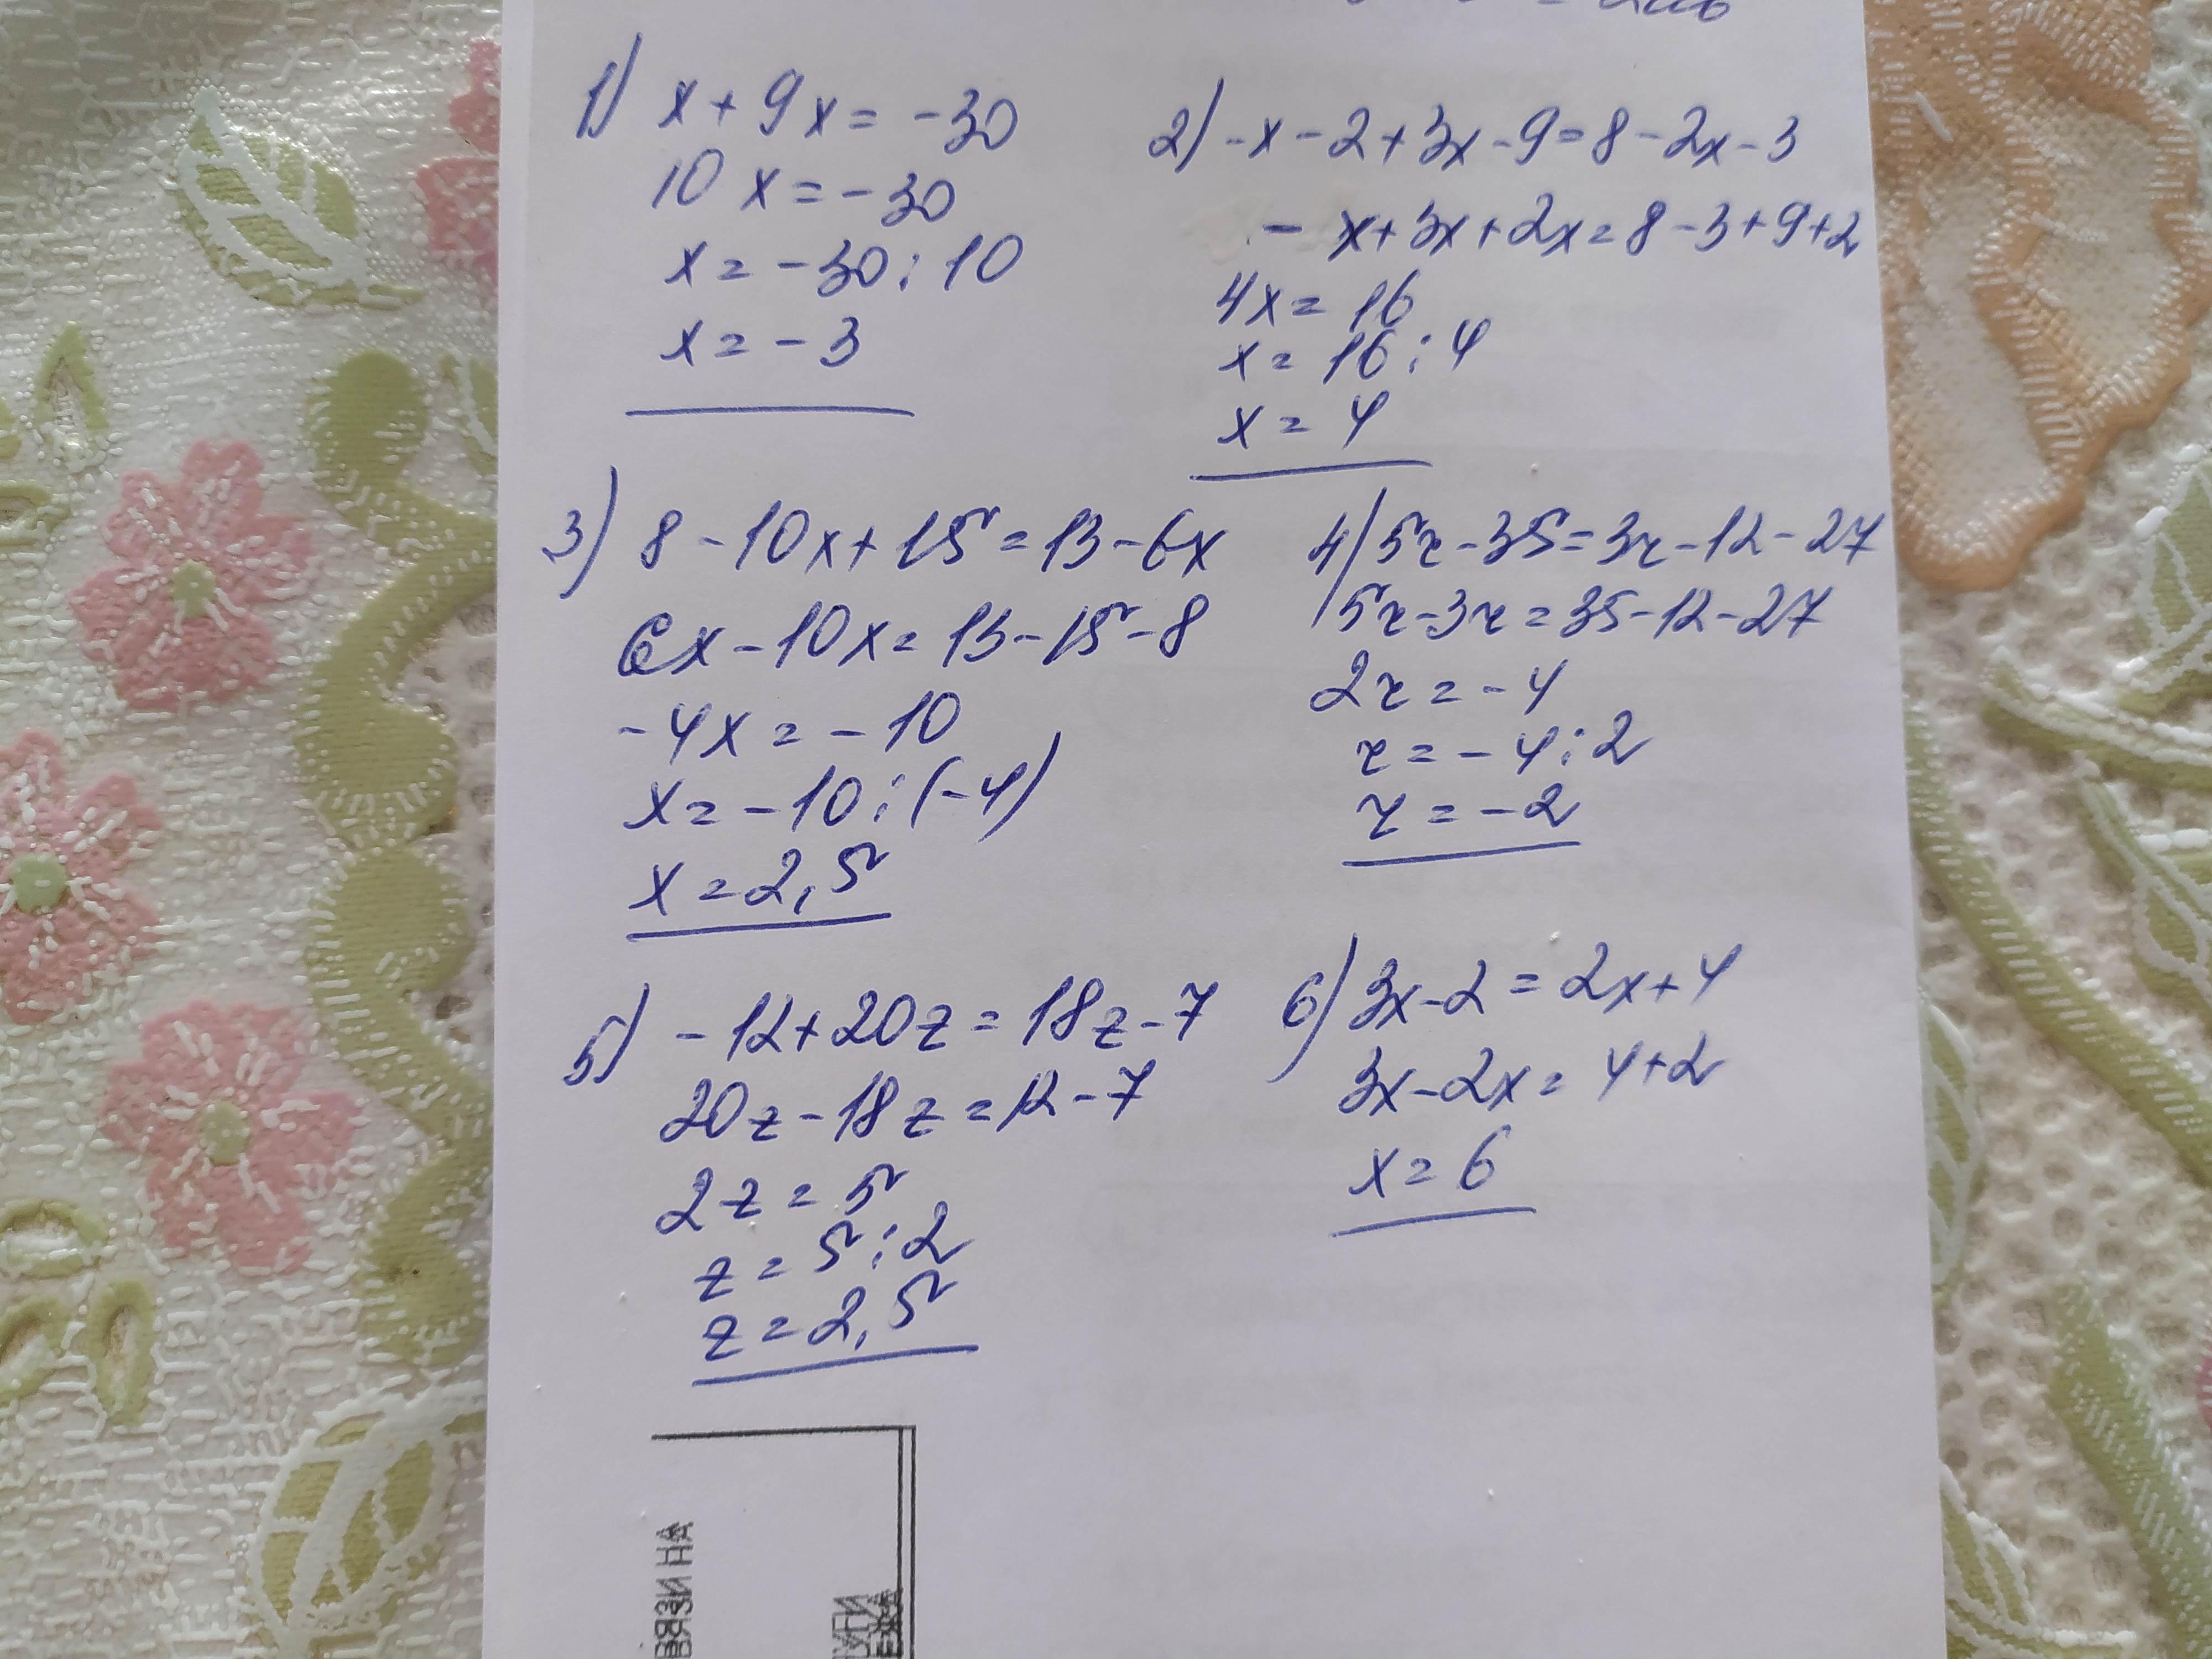 1) x + 9x = -30
10 x = -30
x = -30 : 10
x = -3
2) -x - 2 + 3x - 9 = 8 - 2x - 3
- x + 3x + 2x = 8 - 3 + 9 + 2
4x = 16
x = 16 : 4
x = 4
3) 8 - 10x + 15 = 13 - 6x
6x - 10x = 13 - 15 - 8
-4x = -10
x = -10 : (-4)
x = 2,5
4) 5z - 35 = 3z - 12 - 27
5z - 3z = 35 - 12 - 27
2z = -4
z = -4 : 2
z = -2
5) -12 + 20z = 18z - 7
20z - 18z = 12 - 7
2z = 5
z = 5 : 2
z = 2,5
6) 3x - 2 = 2x + 4
3x - 2x = 4 + 2
x = 6